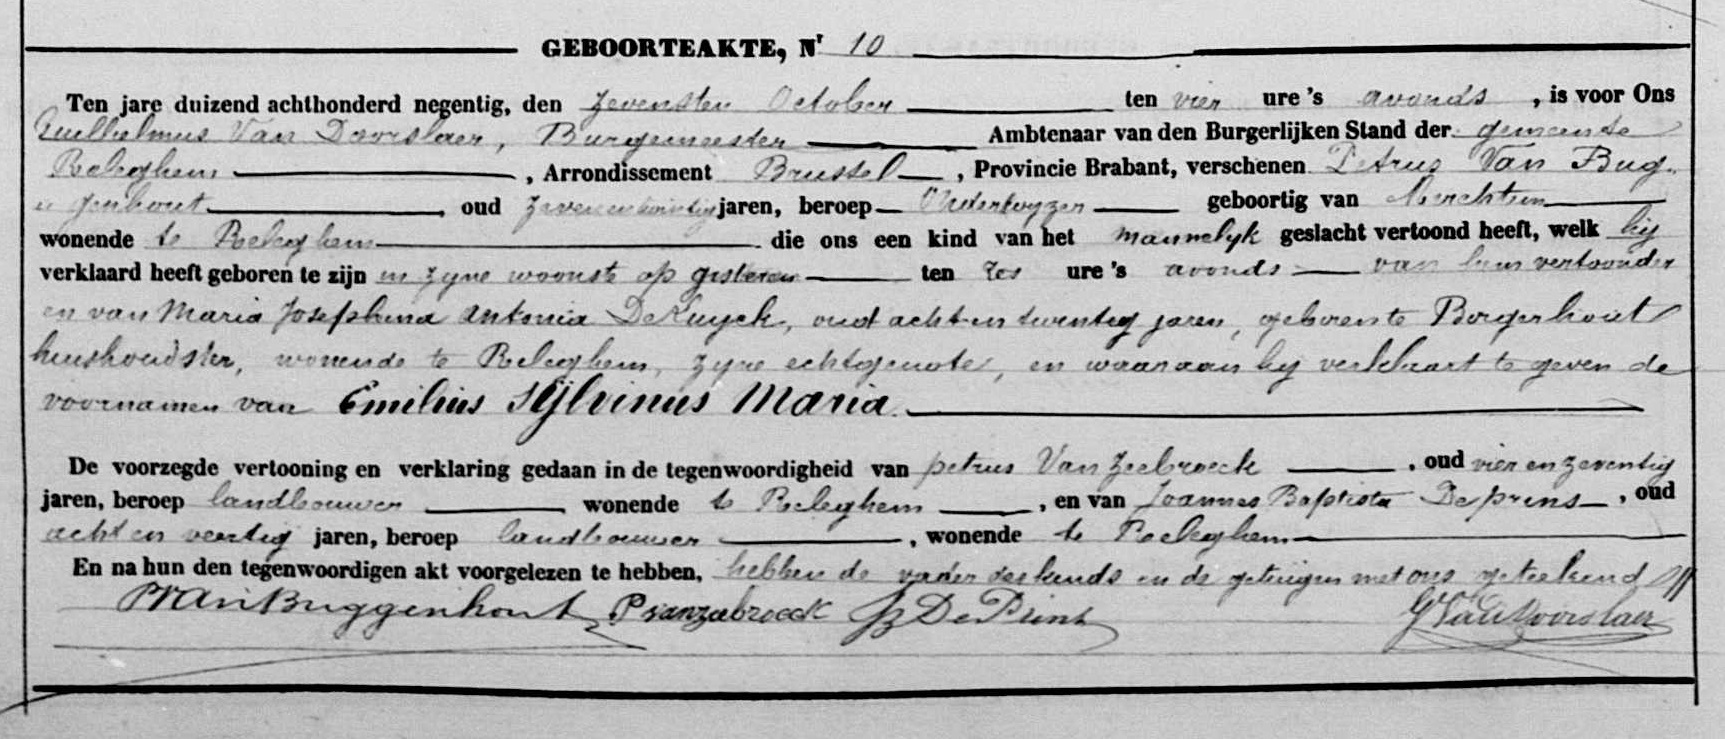 GEBOORTEAKTE, Nr 10
Ten jare duizend achthonderd negentig, den zevensten October ten vier ure's avonds, is voor Ons
Guilhelmus Van Doorslaer, Burgemeester Ambtenaar van den Burgerlijken Stand der gemeente
Releghem, Arrondissement Brussel, Provincie Brabant, verschenen Petrus Van Bug-
genhout oud zevenentwintig jaren, beroep Onderwyzer geboortig van Merchtem
wonende te Releghem die ons een kind van het mannelyk geslacht vertoond heeft, welk hy
verklaard heeft geboren te zijn in zyne woonste op gisteren ten zes ure's avonds van hem vertoonder
en van Maria Josephina Antonia DeKuyck, oud achtentwintig jaren, geboren te Borgerhout
huishoudster, wonende te Releghem, zyne echtgenote, en waaraan hy verklaart te geven de
voornamen van Emilius Sylvinus Maria.
De voorzegde vertooning en verklaring gedaan in de tegenwoordigheid van petrus Van Zeebroeck, oud vier en zeventig
jaren, beroep landbouwer wonende te Releghem, en van Joannes Baptista De prins, oud
acht en veertig jaren, beroep landbouwer, wonende te Releghem
En na hun den tegenwoordigen akt voorgelezen te hebben, hebben de vader des kinds en de getuigen met ons geteekend
PVanBuggenhout P vanzeebroeck JB De Prins GVanDoorslaer